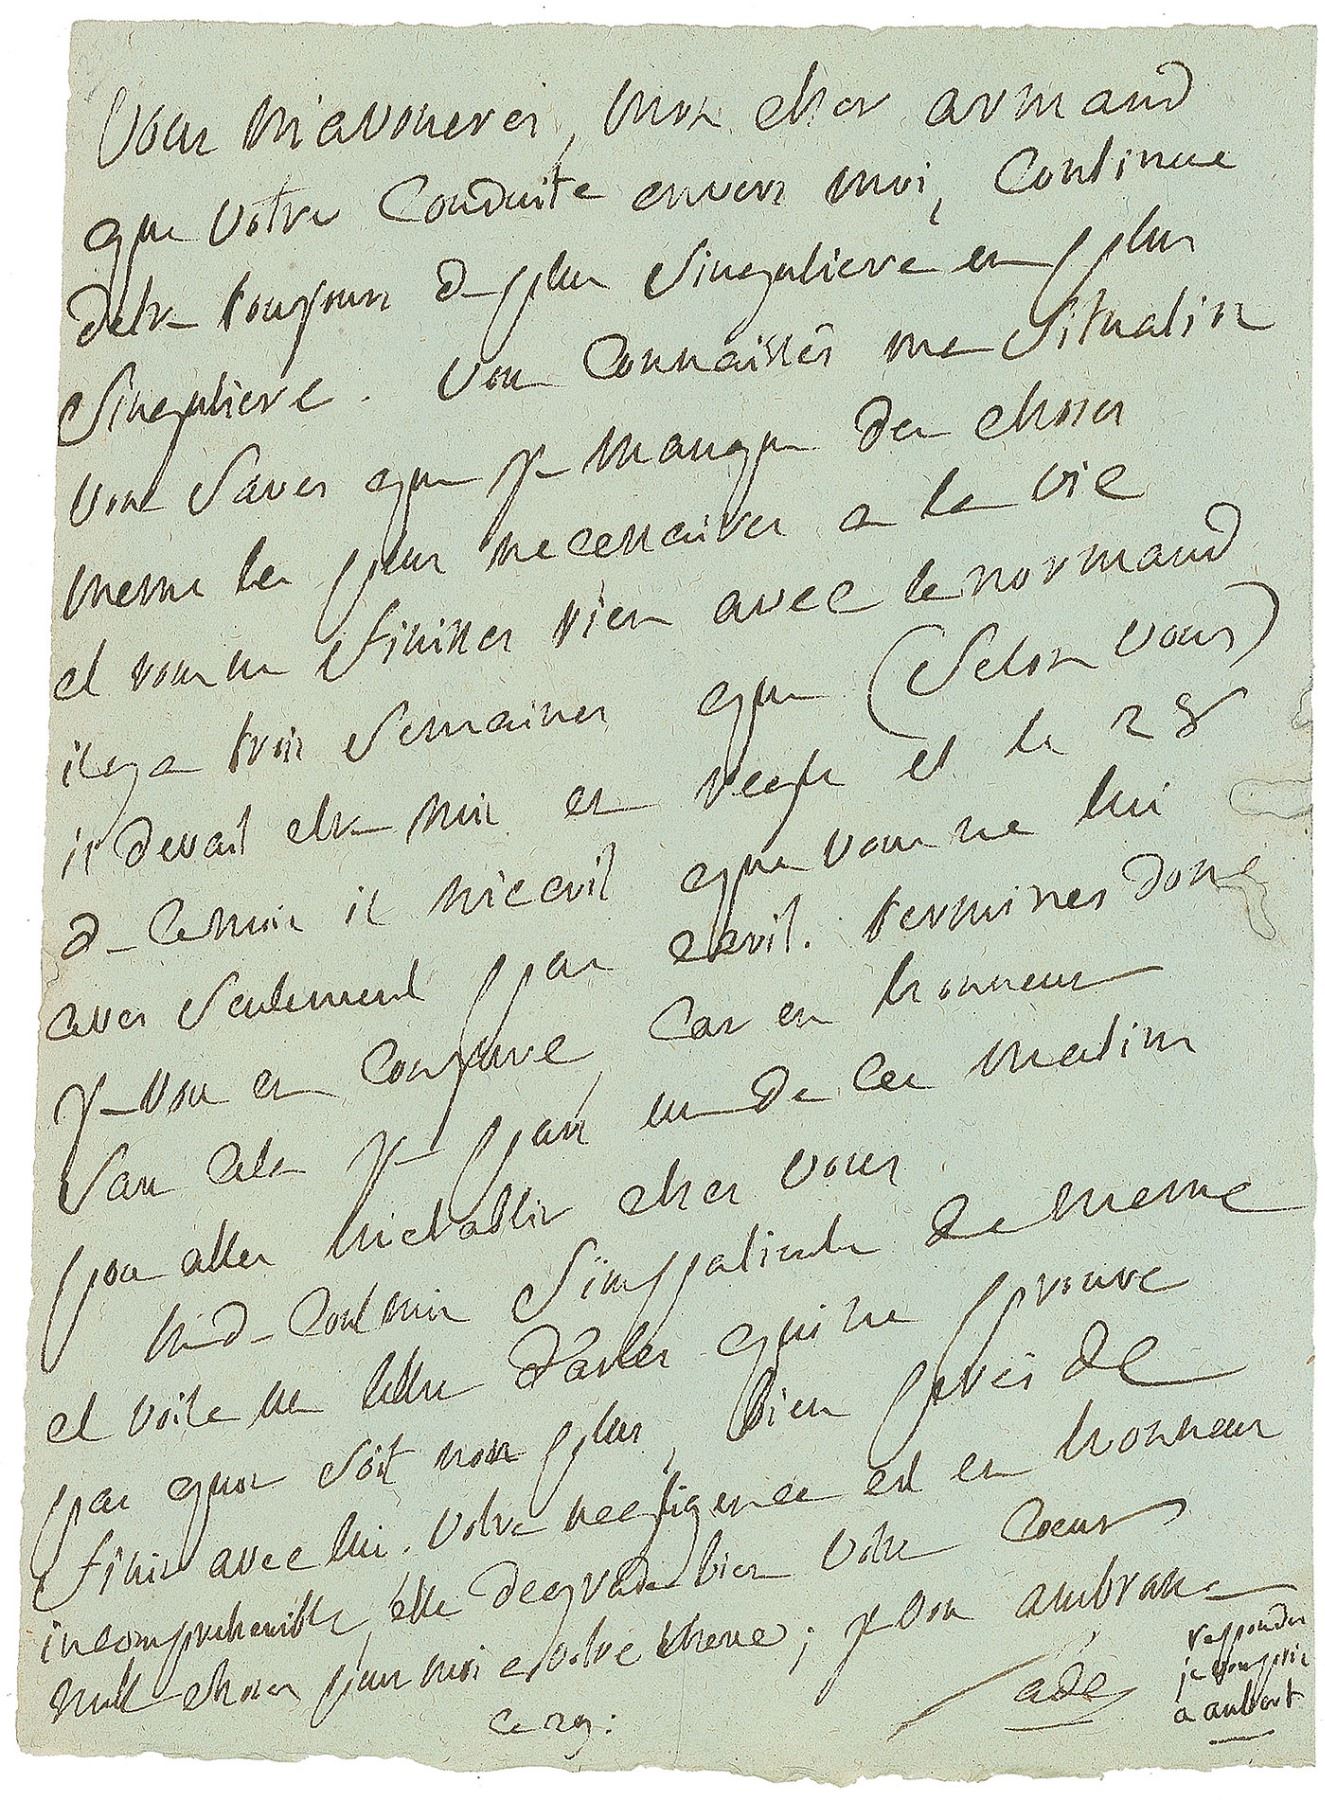 vous m'avouerés, mon cher armand
que votre Conduite envers moi, Continue
detre toujours de plus singuliere en plus
singuliere. vous Connaissés ma situation
vous savés que je manque des choses
meme les plus necessaires a la vie
et vous ne finissés rien avec lenormand
il y a trois semaines que (selon vous)
il devait etre mis en regle et le 28
de Ce mois il m'ecrit que vous ne lui
avés seulement pas ecrit. terminés donc
je vous en Conjure, Car en honneur
sans Cela je pars un de Ces matins
pour aller m'etablir chés vous.
de meme
et voila une lettre d'arles qui ne prouve
pas quon soit non plus, bien près de
finir avec lui. votre negligence est en honneur
incomprehensible, elle degrade bien votre Coeur
mille choses pour moi a votre chere; je vous embrasse
Sade
Ce 29:
repondés
je vous prie
a aubert